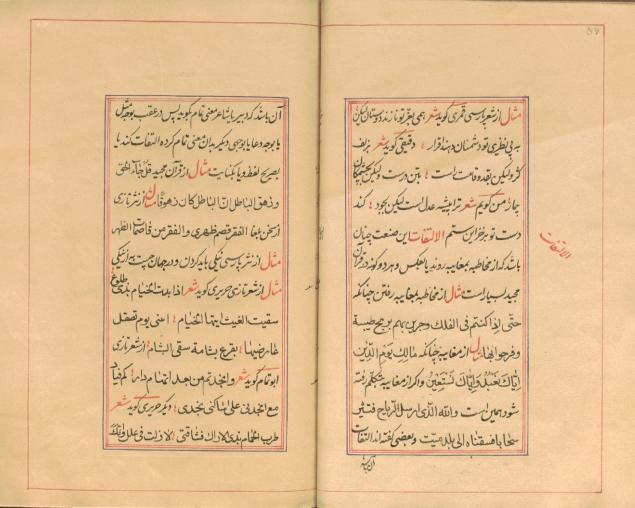 مثال از شعر پارسی قمری گوید شعر همی بعز تو نازند دوستان لیکن
به بی نظیری تو دشمنان دهند اقرار دقیقی گوید شعر بزلف
کژ ولیکن بقد و قامت راست بتن درست ولیکن بچشمکان
بیمار من گویم شعر ترا پیشه عدل است لیکن بجود کند
دست تو بر خزاین ستم الالتفات این صنعت چنان
باشد که از مخاطبه بمغایبه روند یا بعکس و هر دو گونه در قرآن
مجید بسیار است مثال از مخاطبه بمغایبه رفتن چنانکه
حتی إذا کنتم فی الفلک وجرین بهم بریح طیبة
وفرحوا بها مثال از مغایبه چنانکه مالک یوم الدین
إیاک نعبد وإیاک نستعین و اگر از مغایبه بتکلم رفته
شود همین است والله الذی ارسل الریاح فتثیر
سحابا فسقناه الی بلد میت و بعضی گفته اند التفات
آن باشد
الالتفات
آن باشد که دبیر یا شاعر معنی تمام بگوید پس در عقب بوجه مثل
یا بوجه دعا یا بوجهی دیگر بدان معنی تمام کرده التفات کند یا
بصریح لفظ و یا بکنایت مثال از قرآن مجید قل جاء الحق
وزهق الباطل إن الباطل کان زهوقا مثال از نثر تازی
قصم ظهری والفقر من قاصمات الظهر
مثال از نثر پارسی نیکی باید کردن و در جهان چیست به از نیکی
مثال از شعر تازی جریر گوید شعر
سقیت الغیث ایتها الخیام اتنسی یوم تصقل
عارضیها بفرع بشامة سقی البشام از شعر تازی
ابو تمام گوید شعر وانجدتم من بعد اتهام دارکم فیا
دمع انجدنی علی ساکنی نجد دیگر جریر گوید شعر
طرب الحمام بذی الاراک فشاقنی لا زلت فی علل